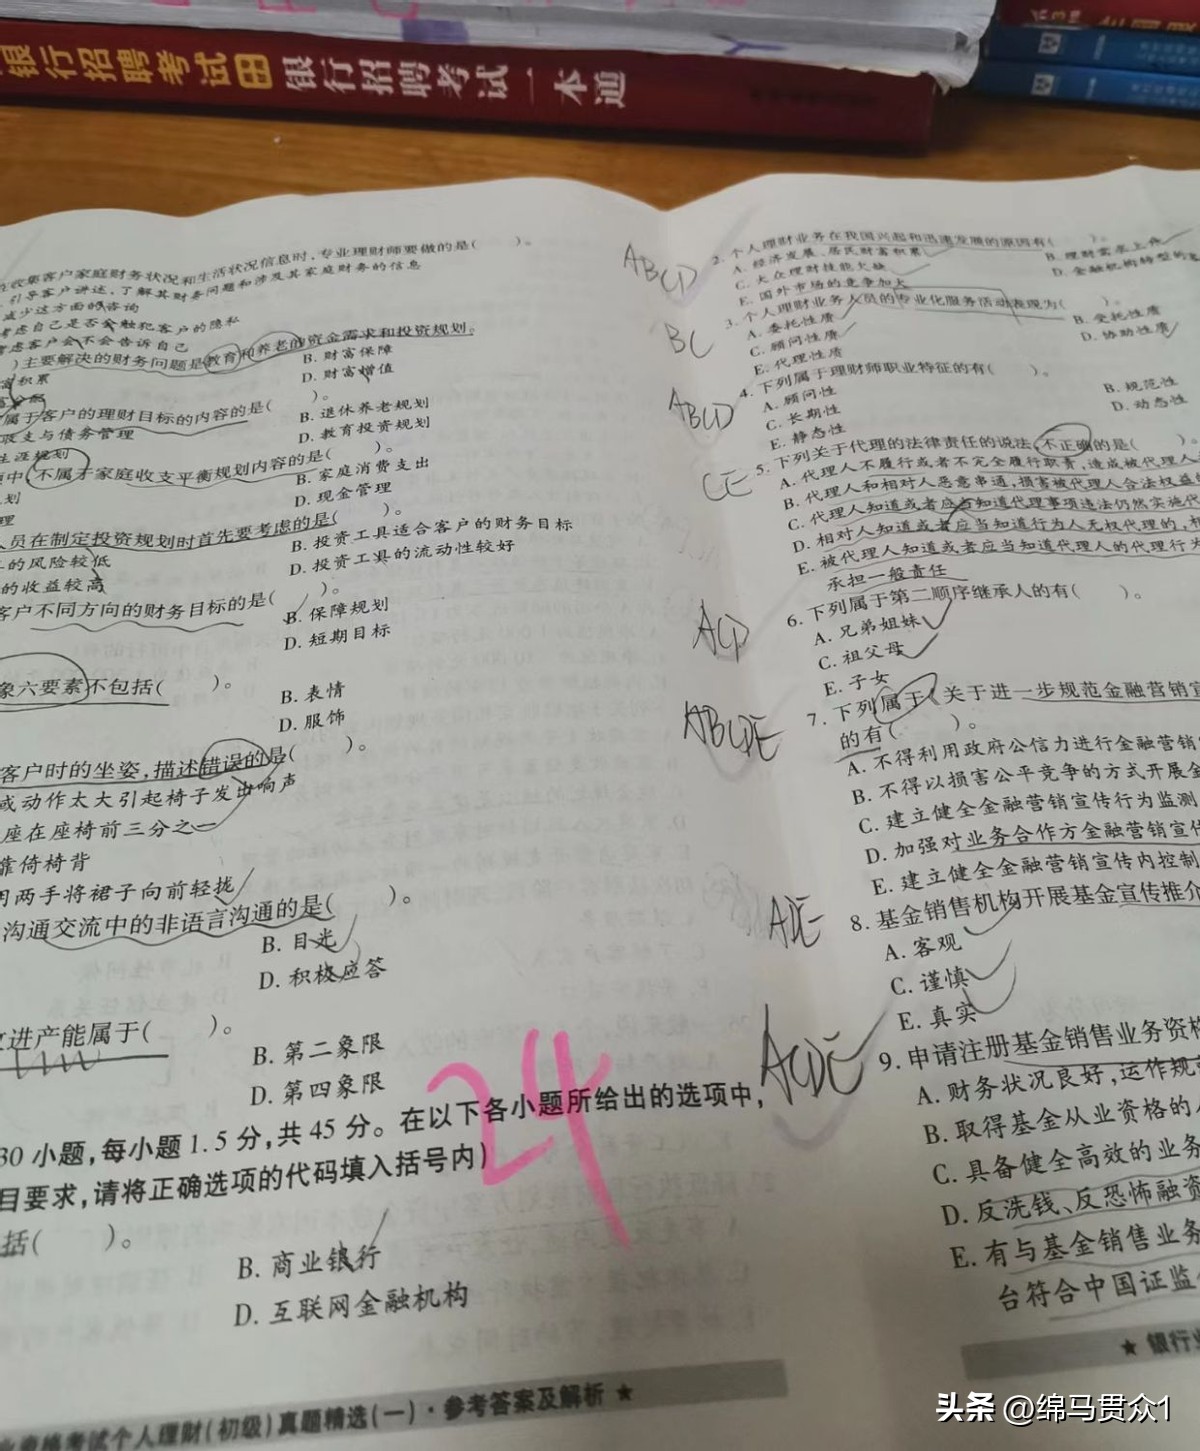 银行招聘考试 银行招聘考试一本道
收集客户家庭财务状况和生活状况信息时,专业理财师要做的是( )。
引导客户讲述,了解其财务问题和涉及其家庭财务的信息
减少这方面的咨询
考虑自己是否会触犯客户的隐私
考虑客户会不会告诉自己
)主要解决的财务问题是教育和养老的资金需求和投资规划。
富积累
B. 财富保障
D. 财富增值
属于客户的理财目标的内容的是( )。
收支与债务管理
B. 退休养老规划
生涯规划
D. 教育投资规划
中,不属于家庭收支平衡规划内容的是( )。
划
B. 家庭消费支出
理
D. 现金管理
人员在制定投资规划时首先要考虑的是( )。
的风险较低
B. 投资工具适合客户的财务目标
的收益较高
D. 投资工具的流动性较好
客户不同方向的财务目标的是( )。
B. 保障规划
D. 短期目标
象六要素不包括( )。
B. 表情
D. 服饰
客户时的坐姿,描述错误的是( )。
或动作太大引起椅子发出响声
座在座椅前三分之一
靠倚椅背
用两手将裙子向前轻拢
沟通交流中的非语言沟通的是( )。
B. 目光
D. 积极应答
进产能属于( )。
B. 第二象限
D. 第四象限
30 小题,每小题 1.5 分,共 45 分。在以下各小题所给出的选项中,
目要求,请将正确选项的代码填入括号内)
24
括( )。
B. 商业银行
D. 互联网金融机构
资格考试个人理财(初级)真题精选(一)·参考答案及解析 ★
ABCD
2. 个人理财业务在我国兴起和迅速发展的原因有( )。
A. 经济发展、居民财富积累
B. 理财需求上升
C. 大众理财技能欠缺
D. 金融机构转型的
E. 国外市场的竞争加大
BC
3. 个人理财业务人员的专业化服务活动表现为( )。
A. 委托性质
B. 受托性质
C. 顾问性质
D. 协助性质
E. 代理性质
ABCD
4. 下列属于理财师职业特征的有( )。
A. 顾问性
B. 规范性
C. 长期性
D. 动态性
E. 静态性
CE
5. 下列关于代理的法律责任的说法,不正确的是( )。
A. 代理人不履行或者不完全履行职责,造成被代理人
B. 代理人和相对人恶意串通,损害被代理人合法权益的
C. 代理人知道或者应当知道代理事项违法仍然实施代
D. 相对人知道或者应当知道行为人无权代理的,相
E. 被代理人知道或者应当知道代理人的代理行为
承担一般责任
ACD
6. 下列属于第二顺序继承人的有( )。
A. 兄弟姐妹
C. 祖父母
E. 子女
ABCDE
7. 下列属于《关于进一步规范金融营销宣
的有( )。
A. 不得利用政府公信力进行金融营销
B. 不得以损害公平竞争的方式开展金
C. 建立健全金融营销宣传行为监测
D. 加强对业务合作方金融营销宣传
E. 建立健全金融营销宣传内控制
ADE
8. 基金销售机构开展基金宣传推介
A. 客观
C. 谨慎
E. 真实
ACDE
9. 申请注册基金销售业务资格
A. 财务状况良好,运作规
B. 取得基金从业资格的人
C. 具备健全高效的业务
D. 反洗钱、反恐怖融资
E. 有与基金销售业务
台符合中国证监
★ 银行业
头条 @绵马贯众1